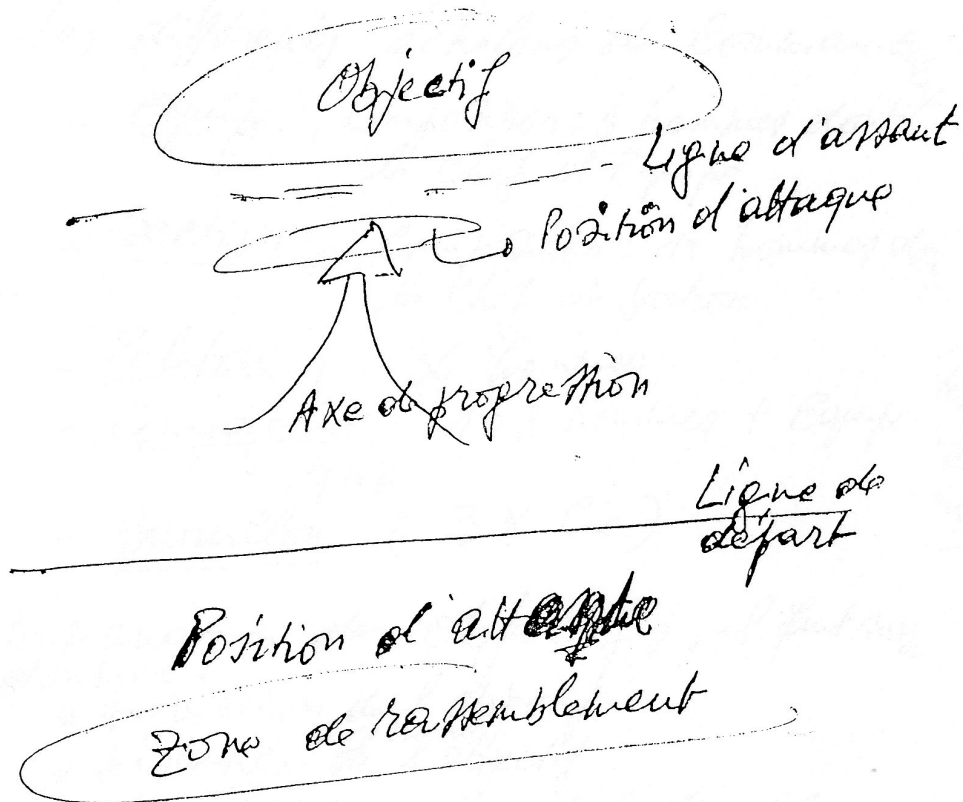 Objectif
Ligne d'assaut
Position d'attaque
Axe de progression
Ligne de
départ
Position d'
Zone de rassemblement